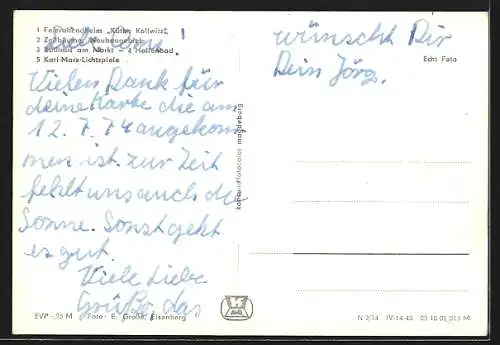 1 Feierabendheim „Käthe Kollwitz"
2 Zellbäume, Neubaugebiet
3 Rathaus am Markt — 4 Hallenbad
5 Karl-Marx-Lichtspiele
!
Vielen Dank für
deine Karte die am
12.7.74 angekom
men ist. zur Zeit
fehlt uns auch die
Sonne. Sonst geht
es gut.
Viele liebe
Grüße, das
wünscht Dir
Dein Jörg.
Echt Foto
magdeburg
EVP -,25 M Foto: E. Große, Eisenberg
N 2/74 IV-14-45